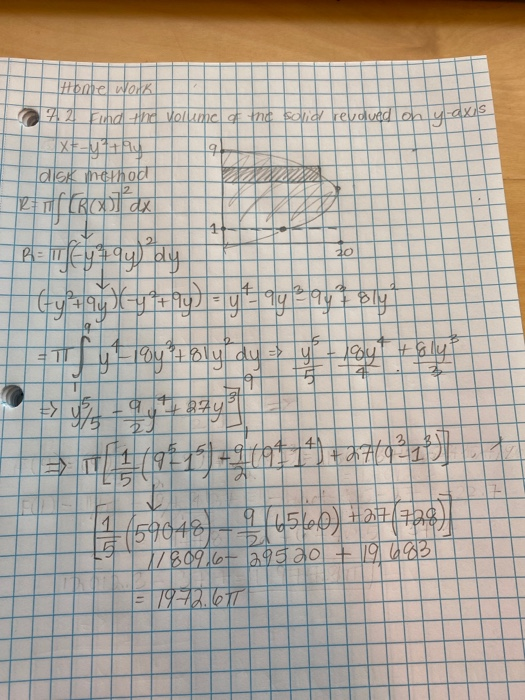 Home Work
7.2 Find the volume of the solid revolved on y-axis
x=-y²+9y
disk method
R=π∫[R(x)]² dx
9
1
20
R=π∫(-y²+9y)² dy
(-y²+9y)(-y²+9y) = y⁴-9y³-9y³+81y²
=π∫₁⁹ y⁴-18y³+81y² dy ⇒ y⁵/5 - 18y⁴/4 + 81y³/3
⇒ y⁵/5 - 9/2 y⁴ + 27y³]₁⁹
⇒ π[1/5(9⁵-1⁵) - 9/2(9⁴-1⁴) + 27(9³-1³)]
[1/5(59048) - 9/2(6560) + 27(728)]
11809.6 - 29520 + 19,683
= 1972.6π